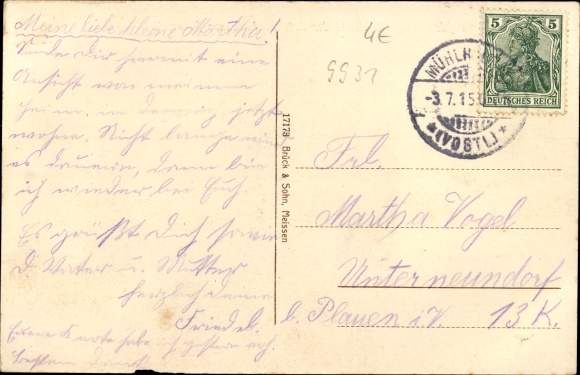 Meine liebe kleine Martha!
Sende Dir hiermit eine
Ansicht von meinem
Heim, in dem ich jetzt
wohne. Nicht lange
es dauern, dann bin
ich wieder bei Euch.
Es grüßt Dich sowie
D. Vater u. Mutter
herzlich Deine
Friedel.
habe ich gestern
Besten Dank
17173 Brück & Sohn, Meissen
4€
9931
5 5
DEUTSCHES REICH
MÜHLH
-3.7.15
*(VOGTL)*
Frl.
Martha Vogel
Unterneundorf
b. Plauen i.V. 13 K.